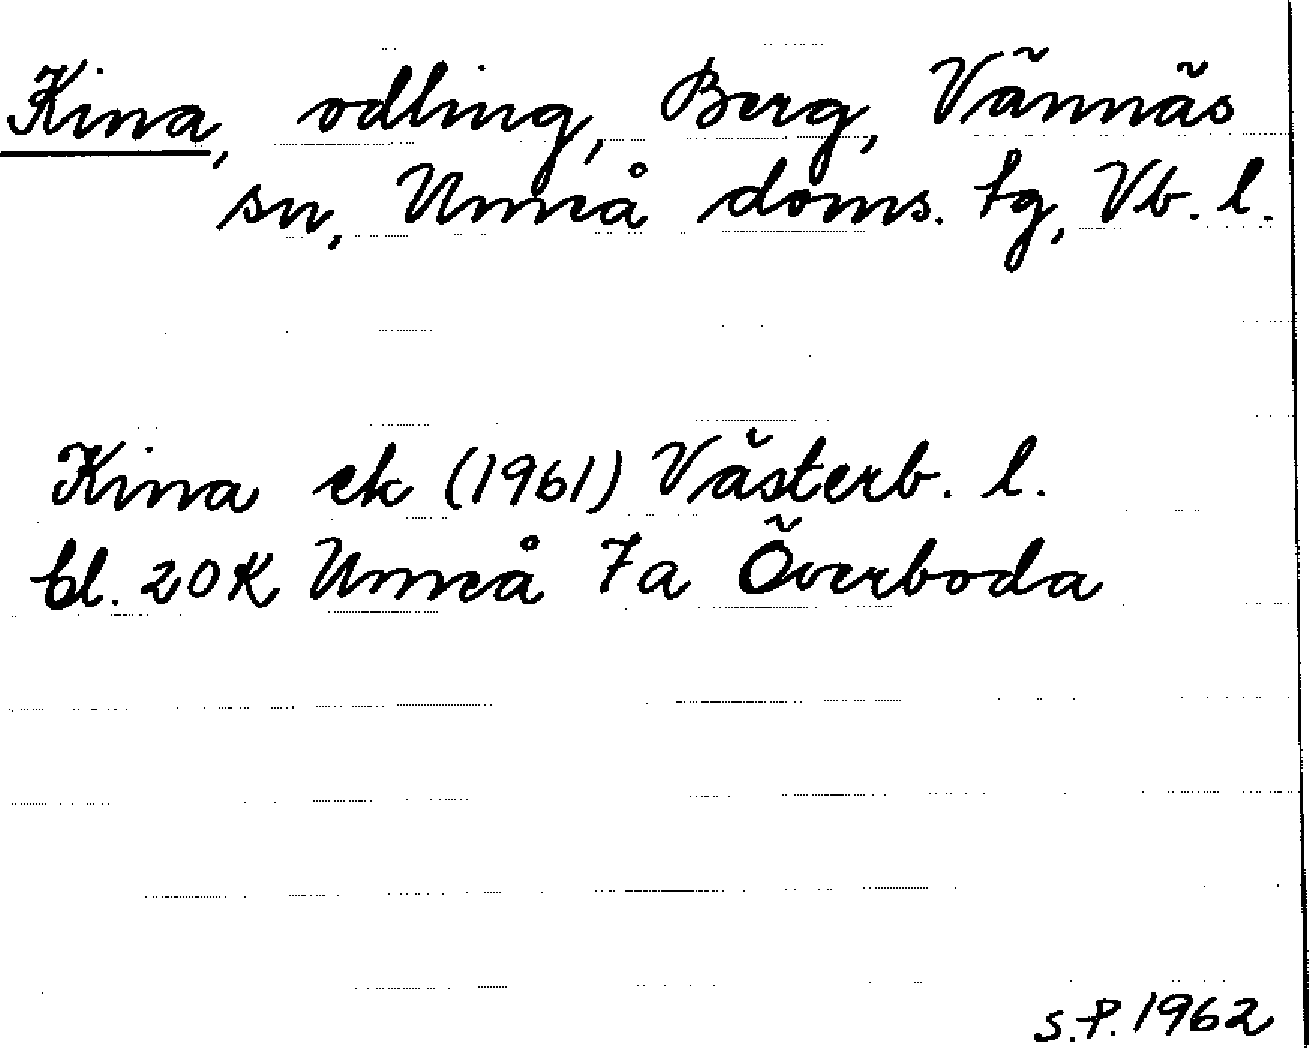 Kina, odling, Berg, Vännäs
sn, Umeå doms. tg, Vb. l.
Kina ek (1961) Västerb. l.
bl. 20K Umeå 7a Överboda
S.P. 1962